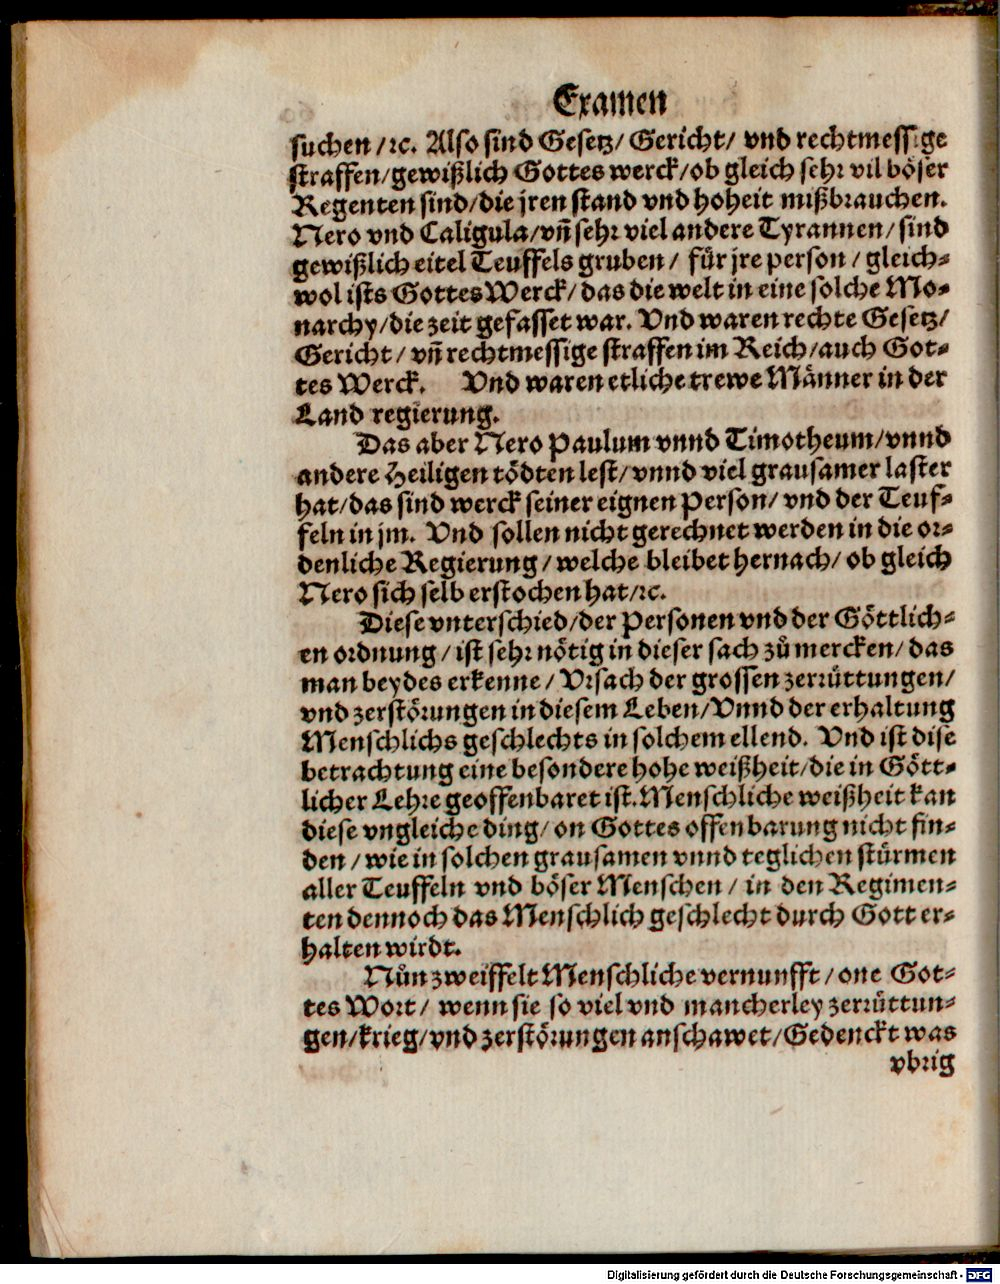 Examen
suchen /ꝛc. Also sind Gesetz/ Gericht/ vnd rechtmessige
straffen/gewißlich Gottes werck/ob gleich sehr vil böser
Regenten sind/die jren stand vnd hoheit mißbrauchen.
Nero vnd Caligula/vñ sehr viel andere Tyrannen/sind
gewißlich eitel Teuffels gruben/ für jre person / gleich⸗
wol ists Gottes Werck/das die welt in eine solche Mo⸗
narchy/die zeit gefasset war. Vnd waren rechte Gesetz/
Gericht/ vñ rechtmessige straffen im Reich/auch Got⸗
tes Werck. Vnd waren etliche trewe Männer in der
Land regierung.
Das aber Nero Paulum vnnd Timotheum/vnnd
andere Heiligen tödten lest/vnnd viel grausamer laster
hat/das sind werck seiner eignen Person/ vnd der Teuf⸗
feln in jm. Vnd sollen nicht gerechnet werden in die or⸗
denliche Regierung/welche bleibet hernach/ob gleich
Nero sich selb erstochen hat/ꝛc.
Diese vnterschied/der Personen vnd der Göttlich⸗
en ordnung/ist sehr nötig in dieser sach zů mercken/das
man beydes erkenne/Vrsach der grossen zerrüttungen/
vnd zerstörungen in diesem Leben/Vnnd der erhaltung
Menschlichs geschlechts in solchem ellend. Vnd ist dise
betrachtung eine besondere hohe weißheit/die in Gött⸗
licher Lehre geoffenbaret ist. Menschliche weißheit kan
diese vngleiche ding/on Gottes offenbarung nicht fin⸗
den/wie in solchen grausamen vnnd teglichen stürmen
aller Teuffeln vnd böser Menschen/ in den Regimen⸗
ten dennoch das Menschlich geschlecht durch Gott er⸗
halten wirdt.
Nůn zweiffelt Menschliche vernunfft/one Got⸗
tes Wort/ wenn sie so viel vnd mancherley zerrüttun⸗
gen/krieg/vnd zerstörungen anschawet/Gedenckt was
vbrig
Digitalisierung gefördert durch die Deutsche Forschungsgemeinschaft - DFG